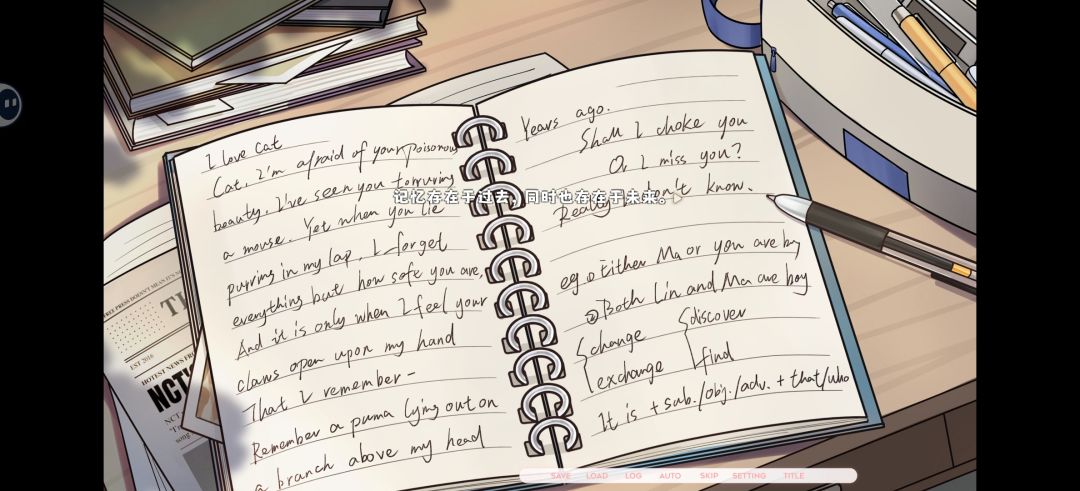 I love Cat
Cat, I'm afraid of your poisonous
beauty. I've seen you torruring
a mouse. Yet when you lie
purring in my lap, I forget
everything but how sofe you are,
And it is only when I feel your
claws open upon my hand
That I remember-
Remember a puma lying out on
a branch above my head
Years ago.
Shall I choke you
Or I miss you?
Really I don't know.
记忆存在于过去，同时也存在于未来。
eg. ① Either Ma or you are boy
② Both Lin and Ma are boy
change
exchange
discover
find
It is + sub./obj./adv. + that/who
EST 2016
HOTEST NEWS FR
NCT
SAVE LOAD LOG AUTO SKIP SETTING TITLE